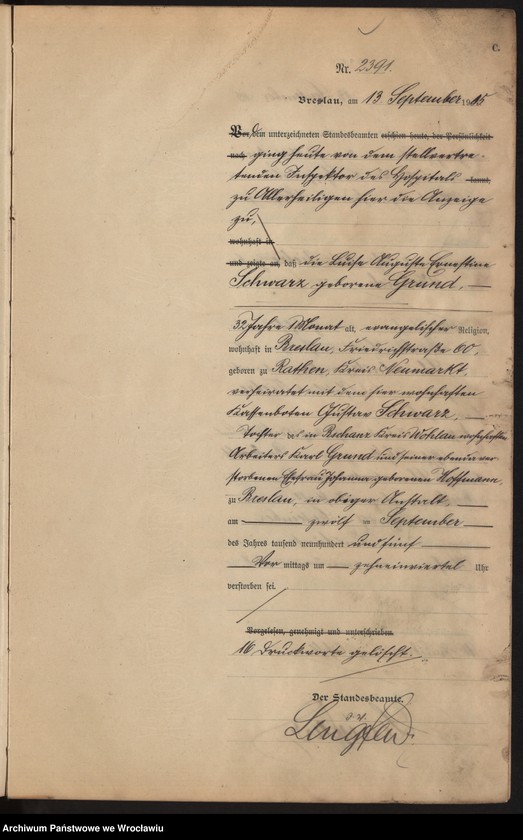 C.
Nr. 2391.
Breslau, am 13. September 1905
Vor dem unterzeichneten Standesbeamten erschien heute, der Persönlichkeit
nach ging heute von dem stellvertre-
tenden Inspektor des Hospitals kannt,
zu Allerheiligen hier die Anzeige
zu,
wohnhaft in
und zeigte an, daß die Luise Auguste Ernestine
Schwarz geborene Grund,
32 Jahre 1 Monat alt, evangelischer Religion,
wohnhaft in Breslau, Friedrichstraße 60,
geboren zu Rathen, Kreis Neumarkt,
verheiratet mit dem hier wohnhaften
Kassenboten Gustav Schwarz,
Tochter des in Kreis Wohlau wohnhaften
Arbeiters Karl Grund und seiner ebenda ver-
storbenen Ehefrau Johanna geborenen Hoffmann,
zu Breslau, in obiger Anstalt,
am zwölf ten September
des Jahres tausend neunhundert und fünf
Vor mittags um zehneinviertel Uhr
verstorben sei.
Vorgelesen, genehmigt und unterschrieben.
16 Druckworte gelöscht.
Der Standesbeamte.
Archiwum Państwowe we Wrocławiu